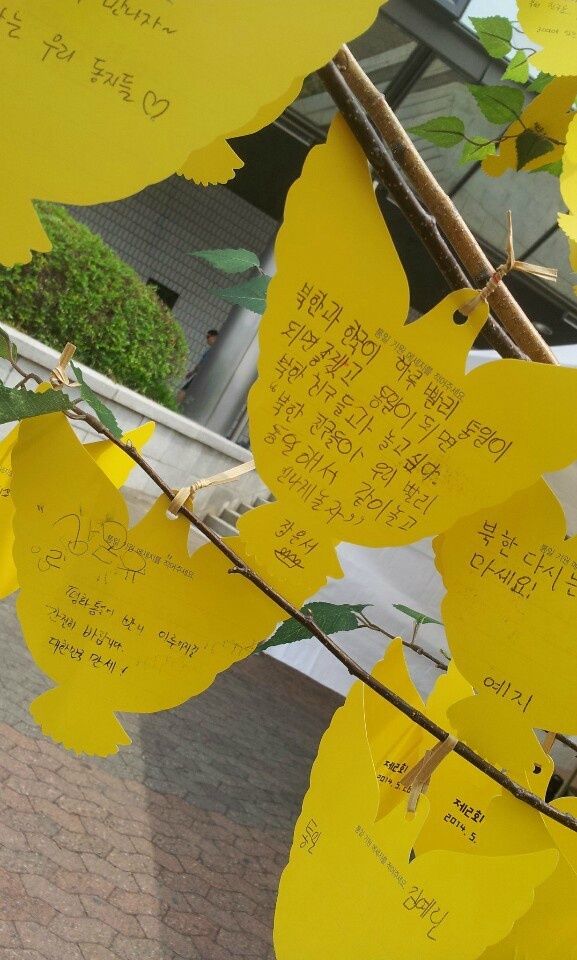 만나자~
는 우리 동지들♡
통일 기원 메세지를 적어주세요
북한과 한국이 하루 빨리 통일이
되면 좋겠고 통일이 되면
북한 친구들과 놀고 싶다.
"북한 친구들아 우리 빨리
통일해서 같이 놀고
신나게 놀자"
장윤서
통일 기원 메세지를 적어주세요
평화통일이 반드시 이루어지길
간절히 바랍니다.
대한민국 만세!
통일 기원 메
북한 다시는
마세요!
예지
제2회
2014.5.
제2회
2014.5.
통일 기원 메세지를 적어주세요
통일
김예린